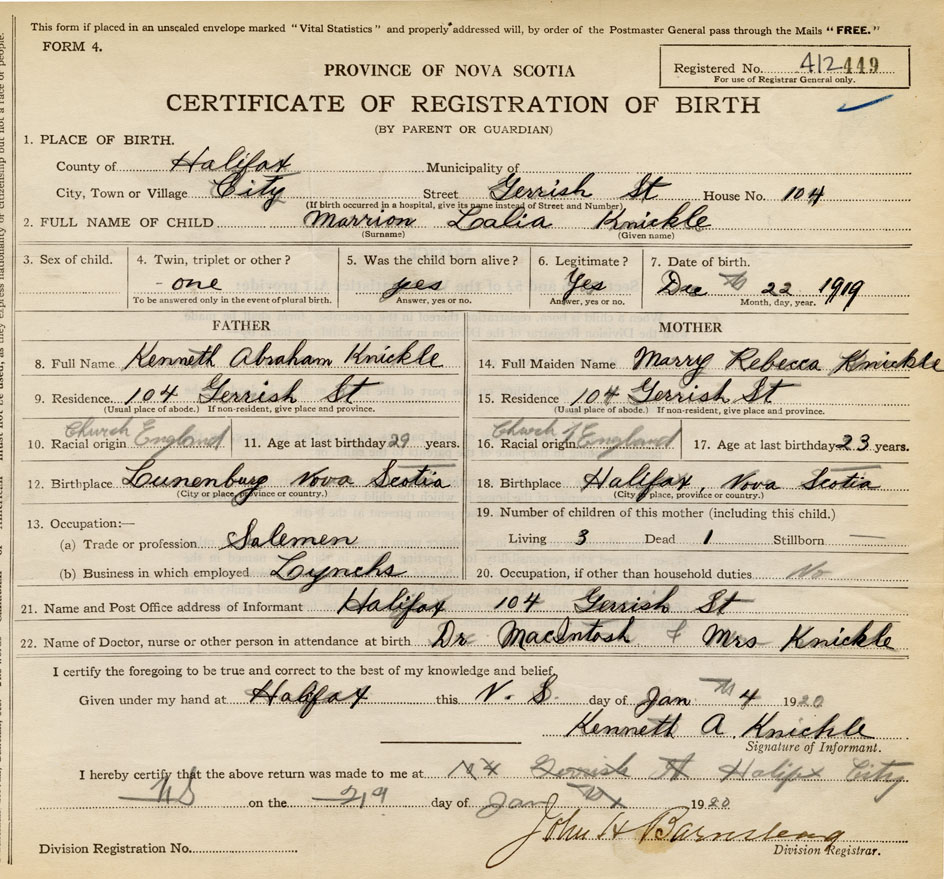 This form if placed in an unscaled envelope marked "Vital Statistics" and properly addressed will, by order of the Postmaster General pass through the Mails "FREE."
FORM 4.
Registered No. 412449
For use of Registrar General only.
PROVINCE OF NOVA SCOTIA
CERTIFICATE OF REGISTRATION OF BIRTH
(BY PARENT OR GUARDIAN)
1. PLACE OF BIRTH.
County of Halifax Municipality of
City, Town or Village City Street Gerrish St House No. 104
(If birth occurred in a hospital, give its name instead of Street and Number)
2. FULL NAME OF CHILD Marrion Lalia Knickle
(Surname) (Given name)
3. Sex of child. 4. Twin, triplet or other? 5. Was the child born alive? 6. Legitimate? 7. Date of birth.
one yes Yes Dec 22 1919
To be answered only in the event of plural birth. Answer, yes or no. Answer, yes or no. Month, day, year.
FATHER
8. Full Name Kenneth Abraham Knickle
9. Residence. 104 Gerrish St
(Usual place of abode.) If non-resident, give place and province.
10. Racial origin Church England 11. Age at last birthday 29 years.
12. Birthplace Lunenburg Nova Scotia
(City or place, province or country.)
13. Occupation:—
(a) Trade or profession Salemen
(b) Business in which employed Lynchs
MOTHER
14. Full Maiden Name Marry Rebecca Knickle
15. Residence 104 Gerrish St
(Usual place of abode.) If non-resident, give place and province.
16. Racial origin Church of England 17. Age at last birthday 23 years.
18. Birthplace Halifax, Nova Scotia
(City or place, province or country.)
19. Number of children of this mother (including this child.)
Living 3 Dead 1 Stillborn —
20. Occupation, if other than household duties No
21. Name and Post Office address of Informant Halifax 104 Gerrish St
22. Name of Doctor, nurse or other person in attendance at birth Dr MacIntosh & Mrs Knickle
I certify the foregoing to be true and correct to the best of my knowledge and belief,
Given under my hand at Halifax this N. S. day of Jan 4 1920
Kenneth A Knickle
Signature of Informant.
I hereby certify that the above return was made to me at Gerrish St Halifx City
NS on the day of Jan 1920
John H Barnsteag
Division Registrar.
Division Registration No.